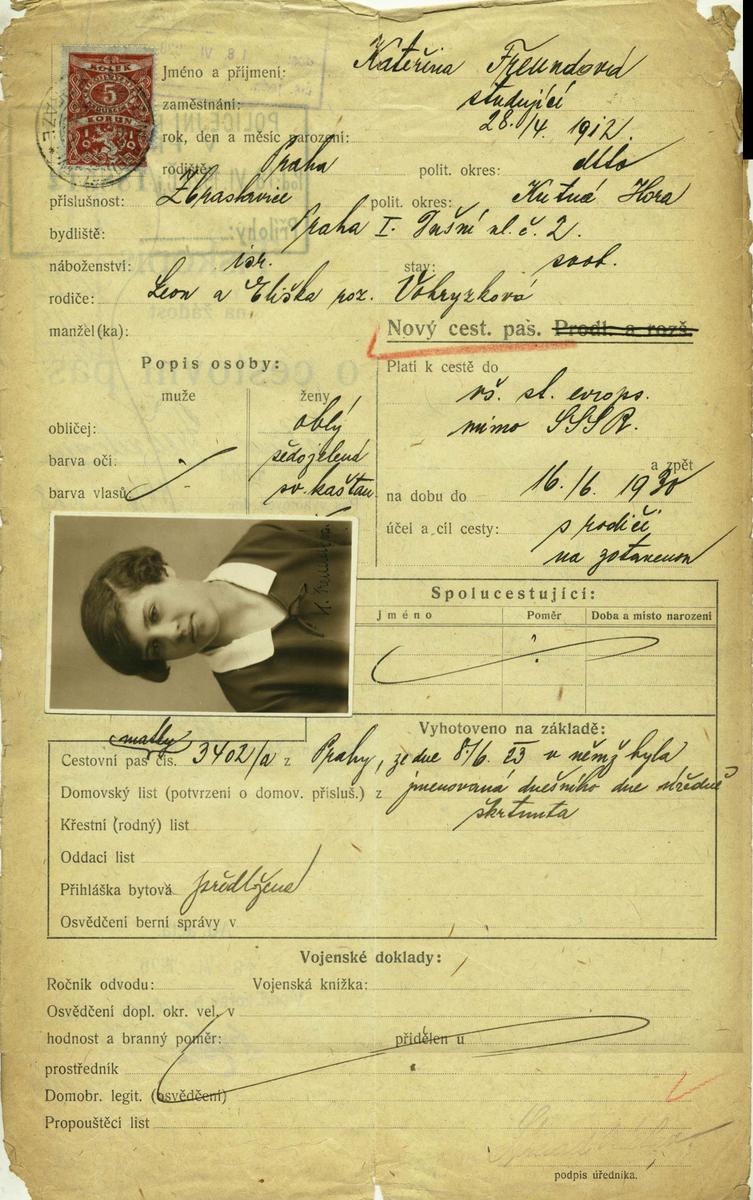 KOLEK
5
KORUN
1919
Jméno a příjmení: Kateřina Freundová
zaměstnání: studující
rok, den a měsíc narození: 28./4. 1912.
rodiště: Praha polit. okres: dtto
příslušnost: Zbraslavice polit. okres: Kutná Hora
bydliště: Praha I. Dušní ul. č. 2.
náboženství: isr. stav: svob.
rodiče: Leon a Eliška roz. Vohryzková
manžel(ka):
Nový cest. pas. Prodl. a rozš.
Popis osoby:
muže ženy
obličej: oblý
barva očí: šedozelená
barva vlasů: sv. kaštan
Platí k cestě do vš. st. evrops.
mimo SSSR.
a zpět
na dobu do 16./6. 1930
účel a cíl cesty: s rodiči
na zotavenou
Spolucestující:
jméno Poměr Doba a místo narození
Vyhotoveno na základě:
matky
Cestovní pas čís. 3402/a z Prahy, ze dne 8/6. 23 v němž byla
Domovský list (potvrzení o domov. přísluš.) z jmenovaná dnešního dne úředně
škrtnuta
Křestní (rodný) list
Oddací list
Přihláška bytová předložena
Osvědčení berní správy v
Vojenské doklady:
Ročník odvodu: Vojenská knížka:
Osvědčení dopl. okr. vel. v
hodnost a branný poměr: přidělen u
prostředník
Domobr. legit. (osvědčení)
Propouštěcí list
podpis úředníka.